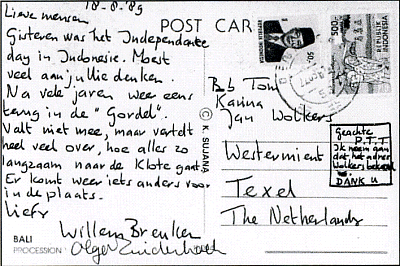 18-8-89
POST CAR
Lieve mensen
Gisteren was het Independante
day in Indonesie. Moest
veel aan jullie denken.
Na vele jaren weer eens
terug in de "Gordel".
Valt niet mee, maar vertelt
heel veel over, hoe alles zo
langzaam naar de Klote gaat
Er komt weer iets anders voor
in de plaats.
Liefs
Willem Breuker
Olga Zuiderhoek
BALI
PROCESSION
© K. SUJANA
500
REPUBLIK
INDONESIA
Bb Tom
Karina
Jan Wolkers
Westermient
Texel
The Netherlands
Geachte
P.T.T
Ik neem aan
dat het adres
Wolkers bekend
is.
DANK U